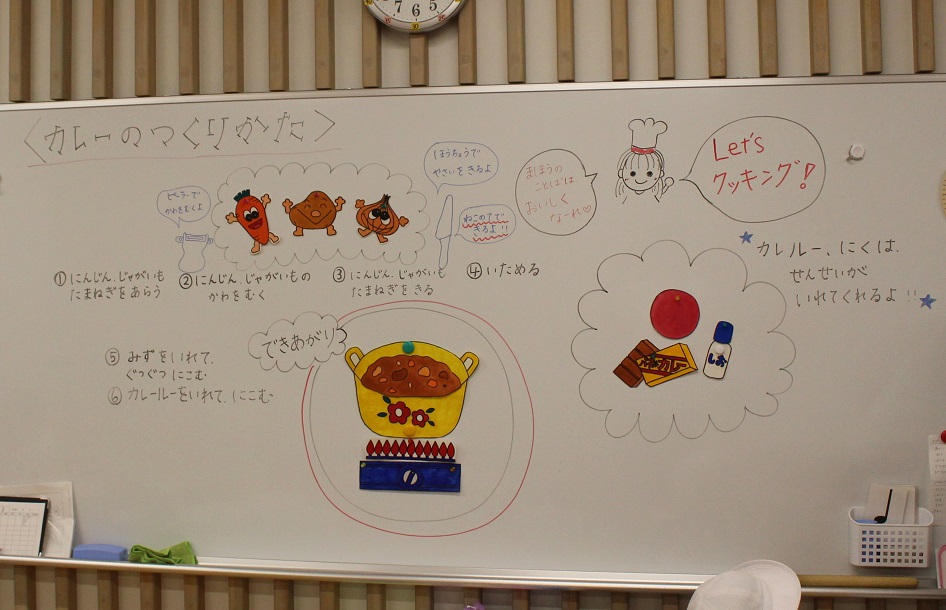 〈カレーのつくりかた〉
ピーラーで
かわをむくよ
ほうちょうで
やさいをきるよ
ねこの手で
きるよ!!
まほうの
ことばは
おいしく
なーれ♡
Let's
クッキング!
① にんじん、じゃがいも
たまねぎをあらう
② にんじん、じゃがいもの
かわをむく
③ にんじん、じゃがいも
たまねぎをきる
④ いためる
⑤ みずをいれて、
ぐつぐつにこむ
⑥ カレールーをいれて、にこむ
できあがり
カレルー、にくは、
せんせいが
いれてくれるよ!!
カレー
しお
7 6 5